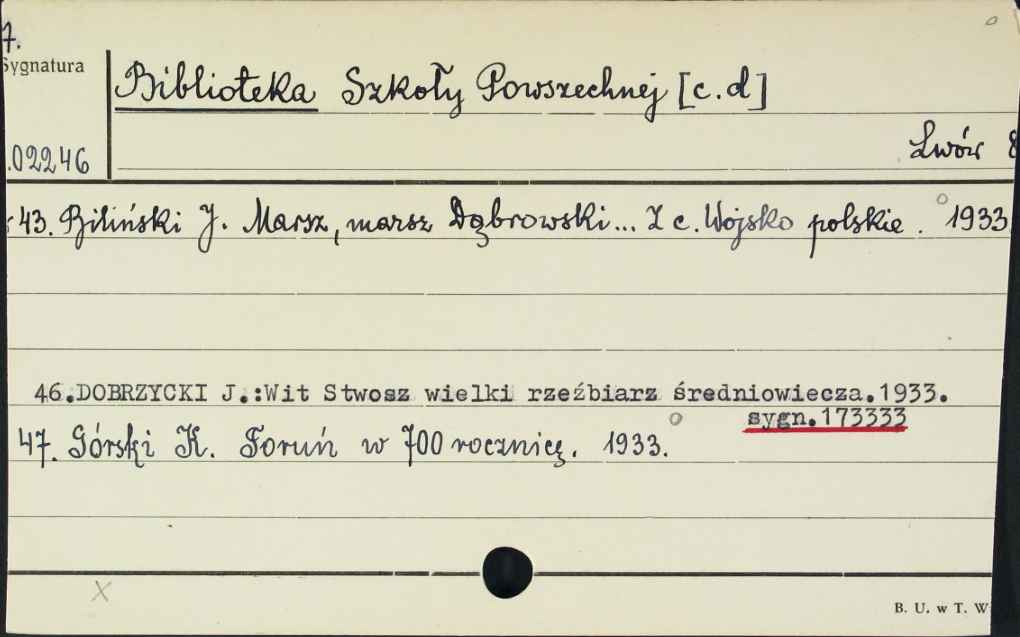 7.
Sygnatura
Biblioteka Szkoły Powszechnej [c.d]
.02246
Lwów 8
43. Biliński J. Marsz, marsz Dąbrowski... Z c. Wojsko polskie. 1933
46.DOBRZYCKI J.:Wit Stwosz wielki rzeźbiarz średniowiecza.1933.
sygn.173333
47. Górski K. Toruń w 700 rocznicę. 1933.
x
B. U. w T. W